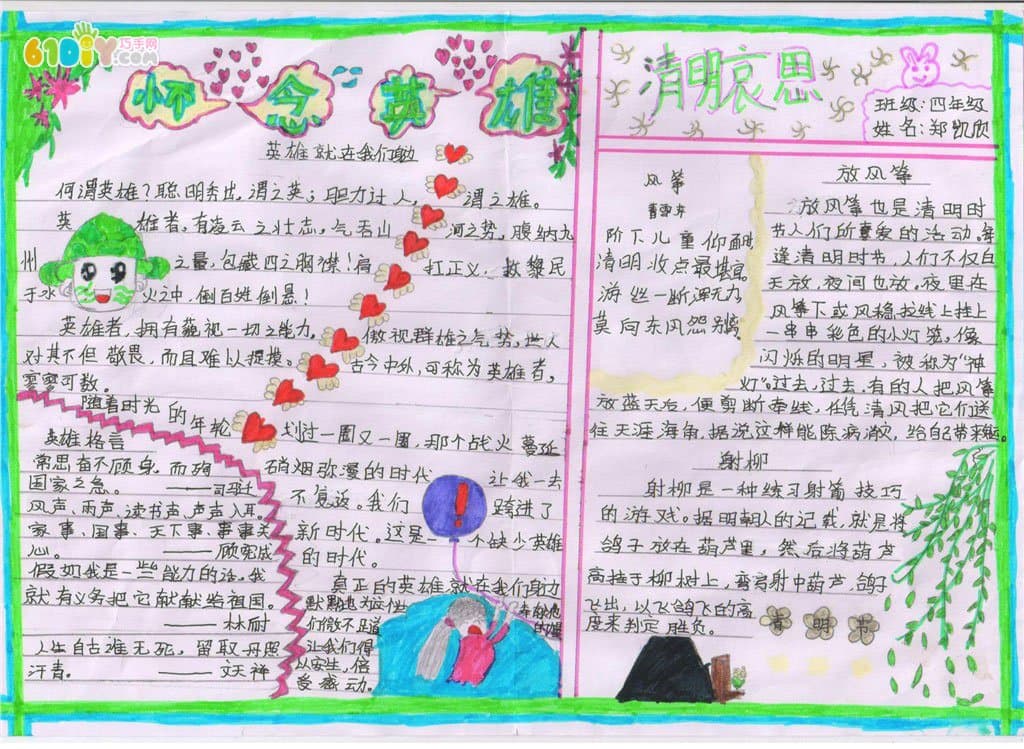 61DIY巧手网
.com
怀念英雄
英雄就在我们身边
何谓英雄？聪明秀出，谓之英；胆力过人，谓之雄。
英雄者，有凌云之壮志，气吞山河之势，腹纳九
州之量，包藏四之胸襟！肩扛正义，救黎民
于水火之中，倒百姓倒悬！
英雄者，拥有藐视一切之能力，傲视群雄之气势，世人
对其不但敬畏，而且难以捉摸。古今中外，可称为英雄者，
寥寥可数。
随着时光的年轮划过一圈又一圈，那个战火蔓延
硝烟弥漫的时代让俄一去
不复返。我们跨进了
新时代。这是一个缺少英雄
的时代。
真正的英雄就在我们身边
默默地为
们微不足道
让我们得
以安生，倍
受感动。
英雄格言
常思奋不顾身，而殉
国家之急。——司马迁
风声、雨声、读书声，声声入耳。
家事、国事、天下事，事事关
心。——顾宪成
假如我是一些能力的话，我
就有义务把它献献给祖国。
——林耐
人生自古难无死，留取丹照
汗青。——文天祥
清明哀思
班级：四年级
姓名：郑凯欣
风筝
阶下儿童仰面
清明妆点最
游丝一断浑无力，
莫向东风怨别
放风筝
放风筝也是清明时
节人们所喜爱的活动。每
逢清明时节，人们不仅白
天放，夜间也放。夜里在
风筝下或风稳拉线上挂上
一串串彩色的小灯笼，像
闪烁的明星，被称为“神
灯”。过去，过去，有的人把风筝
放蓝天后，便剪断牵线，任凭清风把它们送
往天涯海角，据说这样能除病消灾，给自己带来
射柳
射柳是一种练习射箭技巧
的游戏。据明朝人的记载，就是将
鸽子放在葫芦里，然后将葫芦
高挂于柳树上，弯弓射中葫芦，鸽子
飞出，以飞鸽飞的高
度来判定胜负。
清明节